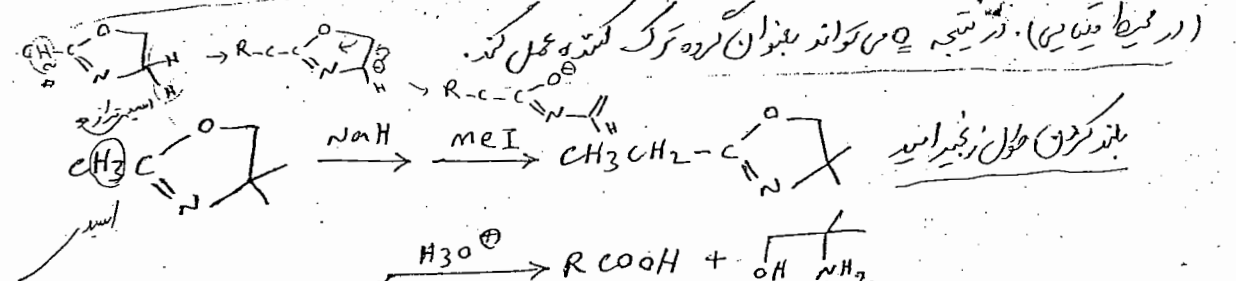 (در محیط قلیایی). در نتیجه O می‌تواند بعنوان گروه ترک کننده عمل کند.
CH₂-C O N H H → R-C-C O N H
→ R-C-C O⊖ N H
CH3 C O N NaH → MeI → CH3CH2-C O N بلند کردن طول زنجیر اسید
اسید
H3O⊕ → RCOOH + OH NH2